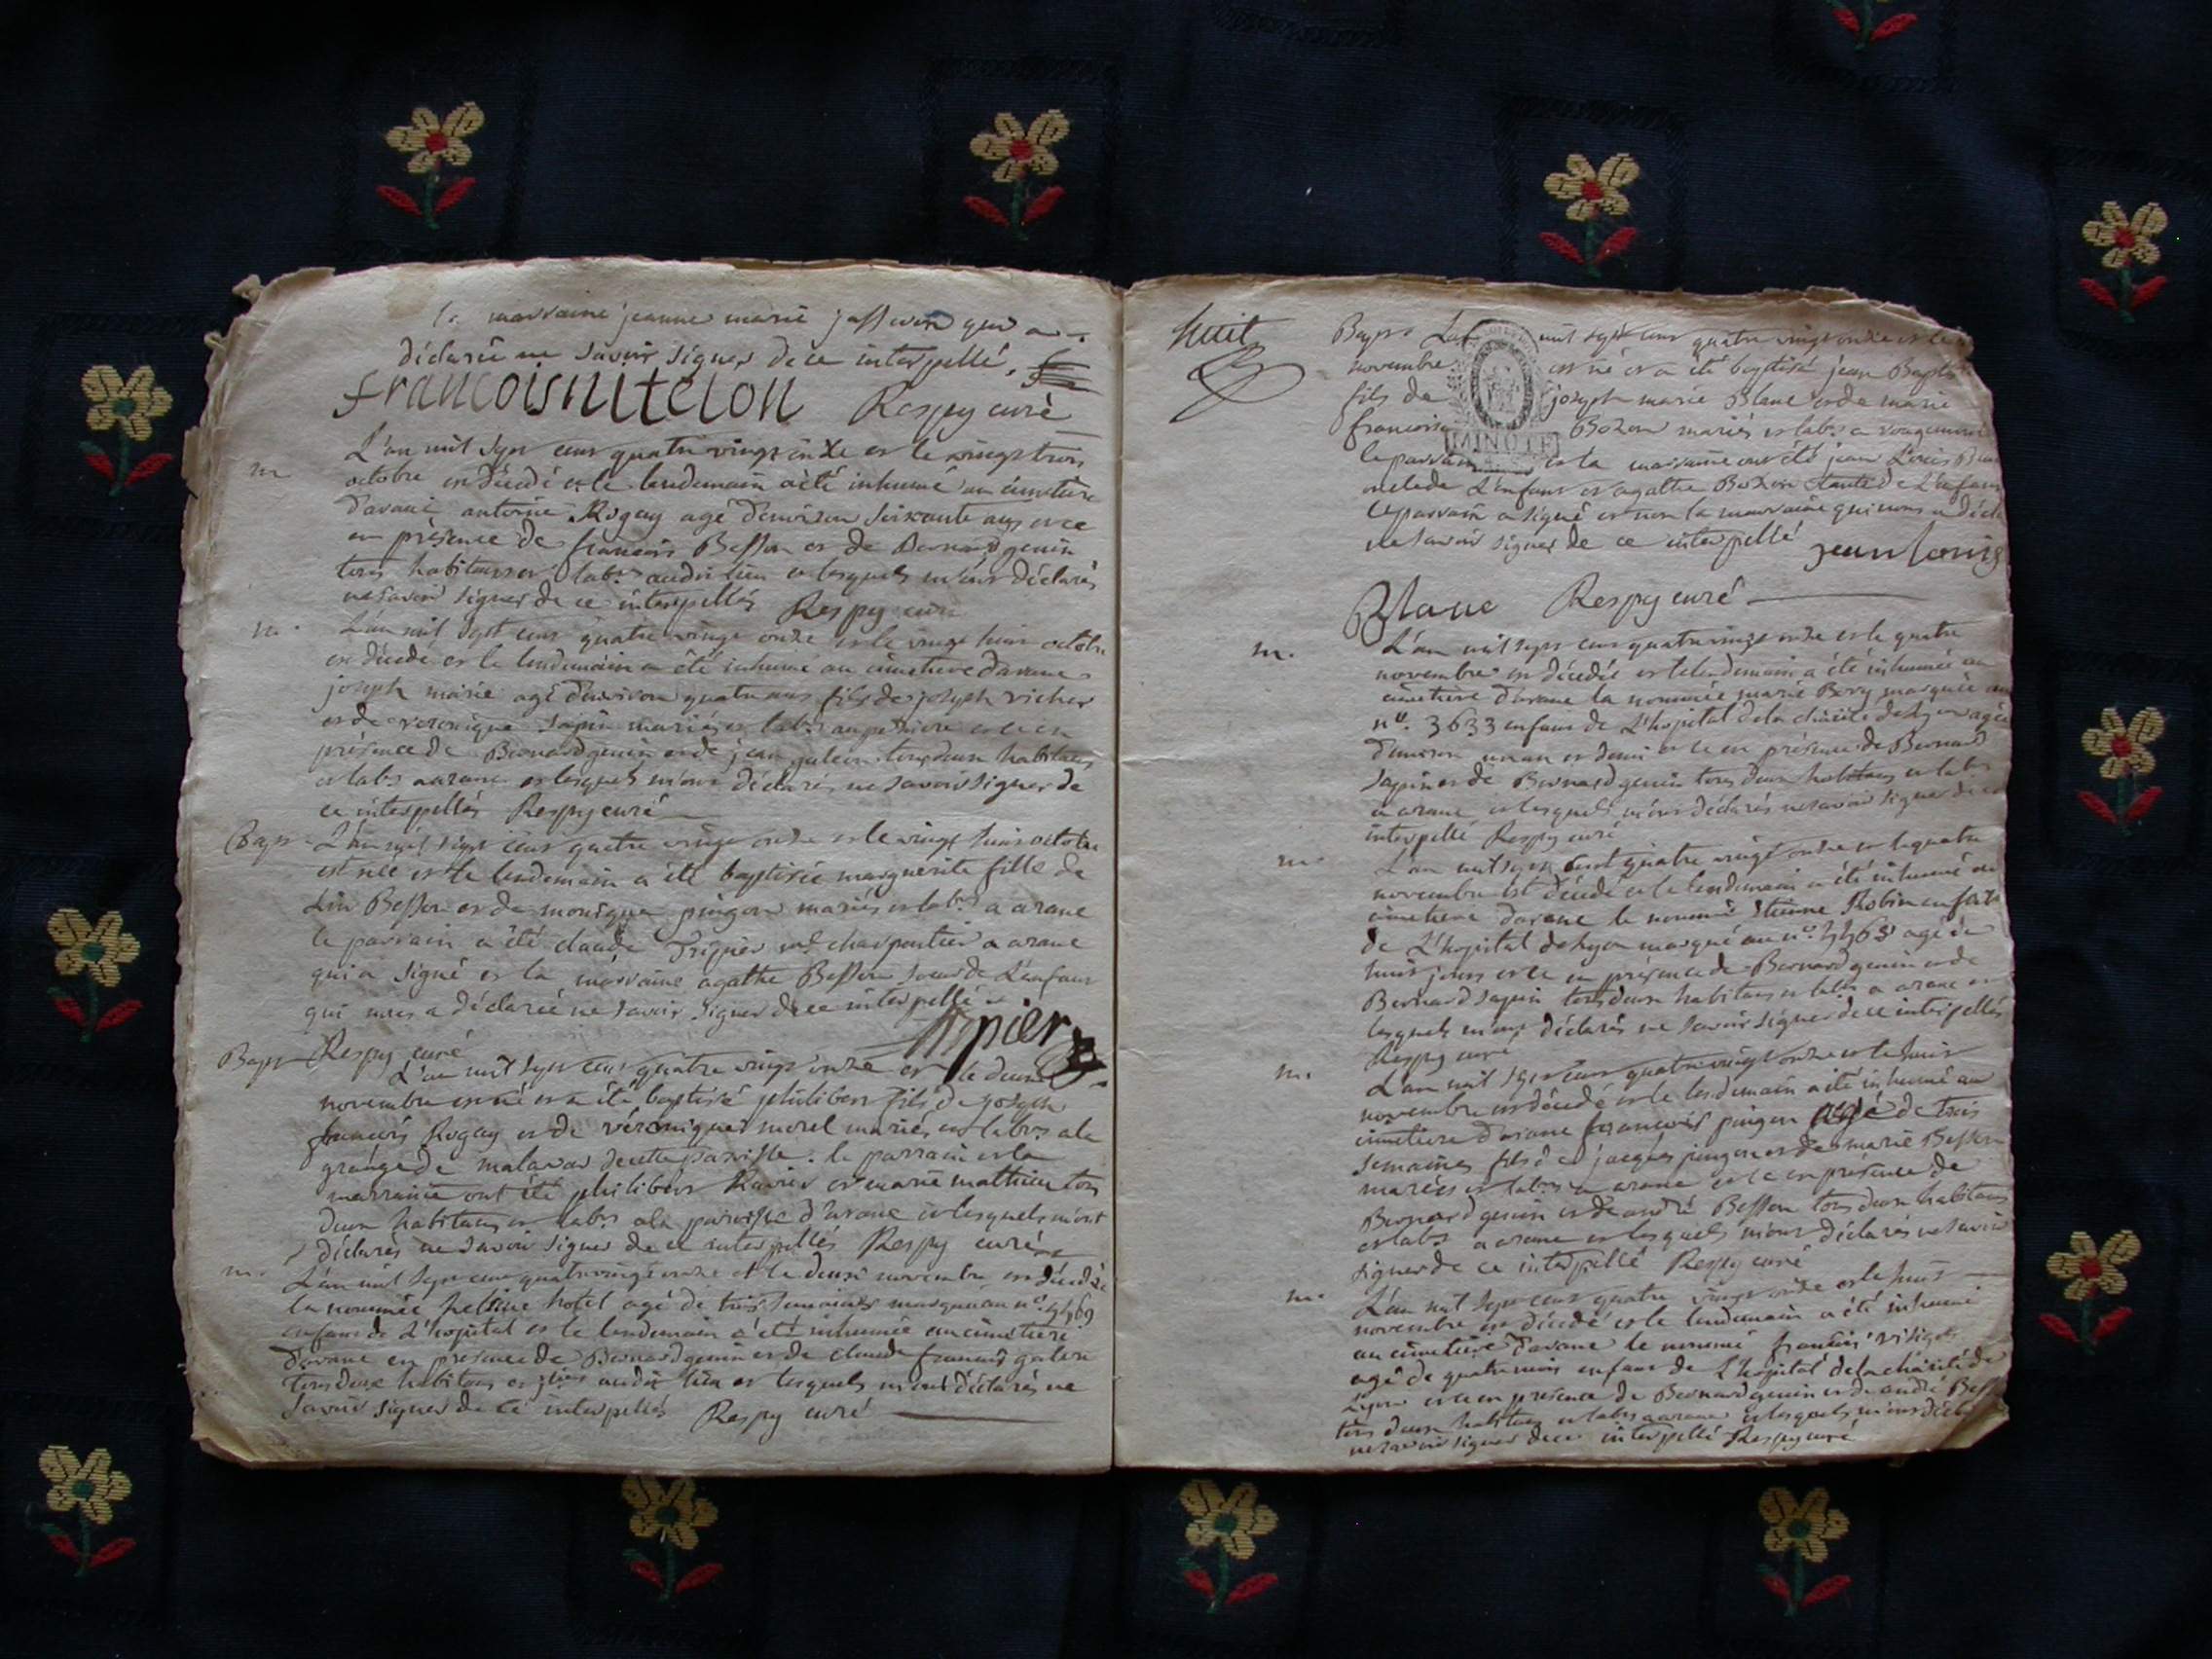 la marraine jeanne marie qui a
déclarée ne savoir signer de ce interpellé.
francois Respy curé
L'an mil sept cent quatre vingt onze et le vingt trois
m.
octobre est décédé et le lendemain a été inhumé au cimetière
d'arane antoine Rogay agé d'environ soixante ans et ce
en présence de françois Besson et de Bernard genin
tous habitans et labrs audit lieu et lesquels m'ont déclarés
ne savoir signer de ce interpellés Respy curé
m.
L'an mil sept cent quatre vingt onze et le vingt huit octobre
est décédé et le lendemain a été inhumé au cimetiere d'arane
joseph marie agé d'environ quatre ans fils de joseph richer
et de veronique sapin mariés et labrs et ce en
présence de Bernard genin et de jean galien tous deux habitans
et labrs a arane et lesquels m'ont déclarés ne savoir signer de
ce interpellés Respy curé
Bapt
L'an mil sept cent quatre vingt onze et le vingt huit octobre
est née et le lendemain a été baptisée marguerite fille de
Besson et de monique pingon mariés et labrs a arane
le parrain a été claude charpentier a arane
qui a signé et la marraine agathe Besson soeur de L'enfant
qui nous a déclarée ne savoir signer de ce interpellé
Respy curé
Bapt
L'an mil sept cent quatre vingt onze et le deux
novembre est né et a été baptisé philibert fils de joseph
francois Rogay et de véronique morel mariés et labrs a la
grange de de cette paroisse. le parrain et la
marraine ont été philibert Ravier et marie mathieu tous
deux habitans et labrs a la paroisse d'arane et lesquels m'ont
déclarés ne savoir signer de ce interpellés Respy curé
m.
L'an mil sept cent quatre vingt onze et le deux novembre est décédée
la nommée hotel agé de trois semaines marquée au n°.
enfant de L'hopital et le lendemain a été inhumée au cimetiere
d'arane en présence de Bernard genin et de claude francois galien
tous deux habitans et audit lieu et lesquels m'ont déclarés ne
savoir signer de ce interpellés Respy curé
huit
Bapt L'an mil sept cent quatre vingt onze et le
novembre est né et a été baptisé jean Baptiste
fils de joseph marie Blanc et de marie
francoise Bozon mariés et labrs a
MINUTE
le parrain et la marraine ont été jean Louis Blanc
oncle de L'enfant et agathe Bozon tante de L'enfant
le parrain a signé et non la marraine qui nous a
ne savoir signer de ce interpellé jean louis
Blanc Respy curé
m.
L'an mil sept cent quatre vingt onze et le quatre
novembre est décédée et le lendemain a été inhumée au
cimetière d'arane la nommée marie Bery marquée au
n°. 3633 enfant de L'hopital de la charité de Lyon agée
d'environ un an et demi et ce en présence de Bernard
sapin et de Bernard genin tous deux habitans et labrs
a arane et lesquels m'ont déclarés ne savoir signer de ce
interpellé Respy curé
m.
L'an mil sept cent quatre vingt onze et le quatre
novembre est décédé et le lendemain a été inhumé au
cimetiere d'arane le nommé Etienne Robin enfant
de L'hopital de Lyon marqué au n°. agé de
huit jours et ce en présence de Bernard genin et de
Bernard sapin tous deux habitans et labrs a arane et
lesquels m'ont déclarés ne savoir signer de ce interpellés
Respy curé
m.
L'an mil sept cent quatre vingt onze et le huit
novembre est décédé et le lendemain a été inhumé au
cimetiere d'arane francois pingon agé de trois
semaines fils de jacques pingon et de marie Besson
mariés et labrs a arane et ce en présence de
Bernard genin et de andré Besson tous deux habitans
et labrs a arane et lesquels m'ont déclarés ne savoir
signer de ce interpellé Respy curé
m.
L'an mil sept cent quatre vingt onze et le huit
novembre est décédé et le lendemain a été inhumé
au cimetière d'arane le nommé francois
agé de quatre mois enfant de L'hopital de la charité de
Lyon et ce en présence de Bernard genin et de andré
tous deux habitans et labrs a arane et lesquels m'ont
ne savoir signer de ce interpellé Respy curé